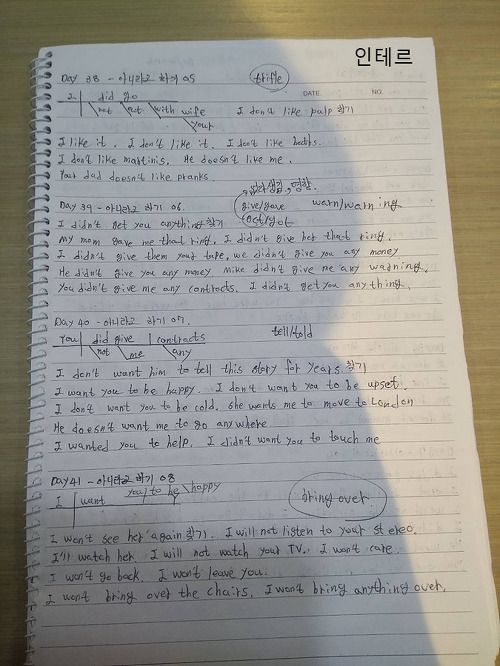 인테르
Day 38 - 아니라고 하기 05 trifle
DATE. NO.
I did go
not with wife I don't like pulp 찾기
your
I like it. I don't like it. I don't like baths.
I don't like martinis. He doesn't like me.
Your dad doesn't like pranks.
Day 39 - 아니라고 하기 06. give/gave warn/warning
I didn't get you anything 찾기 get/got
My mom gave me that ring. I didn't give her that ring.
I didn't give them your tape, we didn't give you any money
He didn't give you any money Mike didn't give me any warning.
You didn't give me any contracts. I didn't get you anything.
Day 40 - 아니라고 하기 07.
You did give contracts tell/told
not me any
I don't want him to tell this story for years 찾기
I want you to be happy. I don't want you to be upset.
I don't want you to be cold. She wants me to move to London
He doesn't want me to go anywhere
I wanted you to help. I didn't want you to touch me
Day 41 - 아니라고 하기 08
I want you to be happy bring over.
I won't see her again 찾기. I will not listen to your stereo.
I'll watch her. I will not watch your TV. I won't care.
I won't go back. I won't leave you.
I won't bring over the chairs. I won't bring anything over.